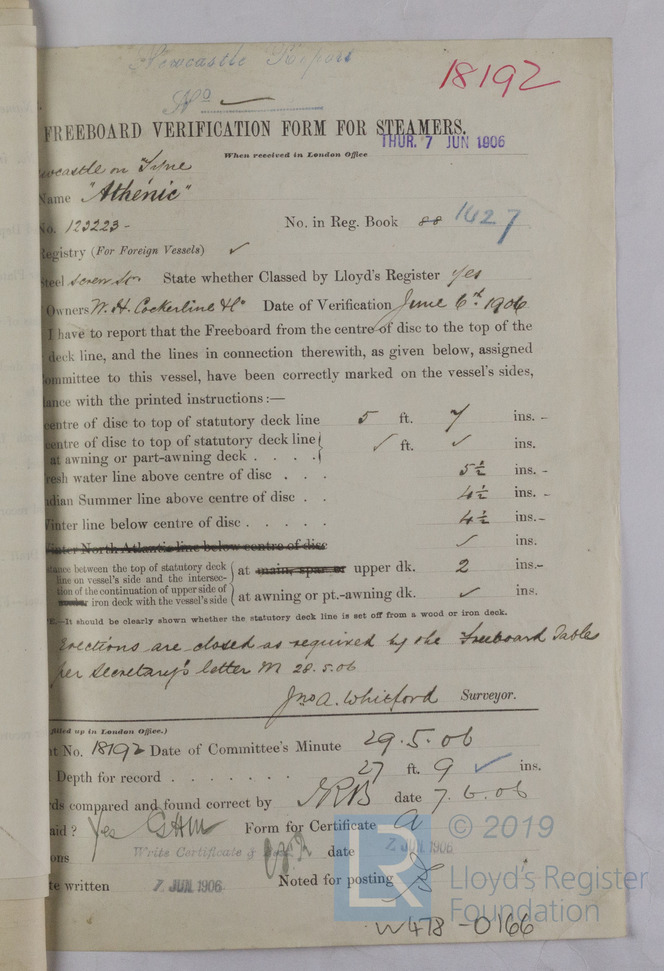 Newcastle Report
18192
No
FREEBOARD VERIFICATION FORM FOR STEAMERS.
THUR. 7 JUN 1906
When received in London Office
ewcastle on Tyne
Name "Athenic"
No. 123223 - No. in Reg. Book 88 1627
Registry (For Foreign Vessels) ✓
Steel Screw Sr. State whether Classed by Lloyd's Register Yes
Owners W. H. Cockerline & Co Date of Verification June 6th 1906
I have to report that the Freeboard from the centre of disc to the top of the
deck line, and the lines in connection therewith, as given below, assigned
ommittee to this vessel, have been correctly marked on the vessel's sides,
dance with the printed instructions:—
centre of disc to top of statutory deck line 5 ft. 7 ins. -
centre of disc to top of statutory deck line ✓ ft. ✓ ins.
at awning or part-awning deck . . . .
resh water line above centre of disc . . . 5½ ins. -
ndian Summer line above centre of disc . . 4½ ins. -
Winter line below centre of disc . . . . . 4½ ins. -
Winter North Atlantic line below centre of disc ✓ ins.
stance between the top of statutory deck
line on vessel's side and the intersec- at main, spar or upper dk. 2 ins. -
tion of the continuation of upper side of
wooden iron deck with the vessel's side at awning or pt.-awning dk. ✓ ins.
B.—It should be clearly shown whether the statutory deck line is set off from a wood or iron deck.
Erections are closed as required by the Freeboard Tables
per Secretary's letter M 28.5.06
Jno A. Whitford Surveyor.
filled up in London Office.)
t No. 18192 Date of Committee's Minute 29.5.06
Depth for record . . . . . . . 27 ft. 9 ✓ ins.
ds compared and found correct by date 7.6.06
aid ? Yes Form for Certificate A
ons Write Certificate & date 7 JUN 1906
te written 7 JUN 1906 Noted for posting
© 2019
LR
Lloyd's Register
Foundation
W478-0166